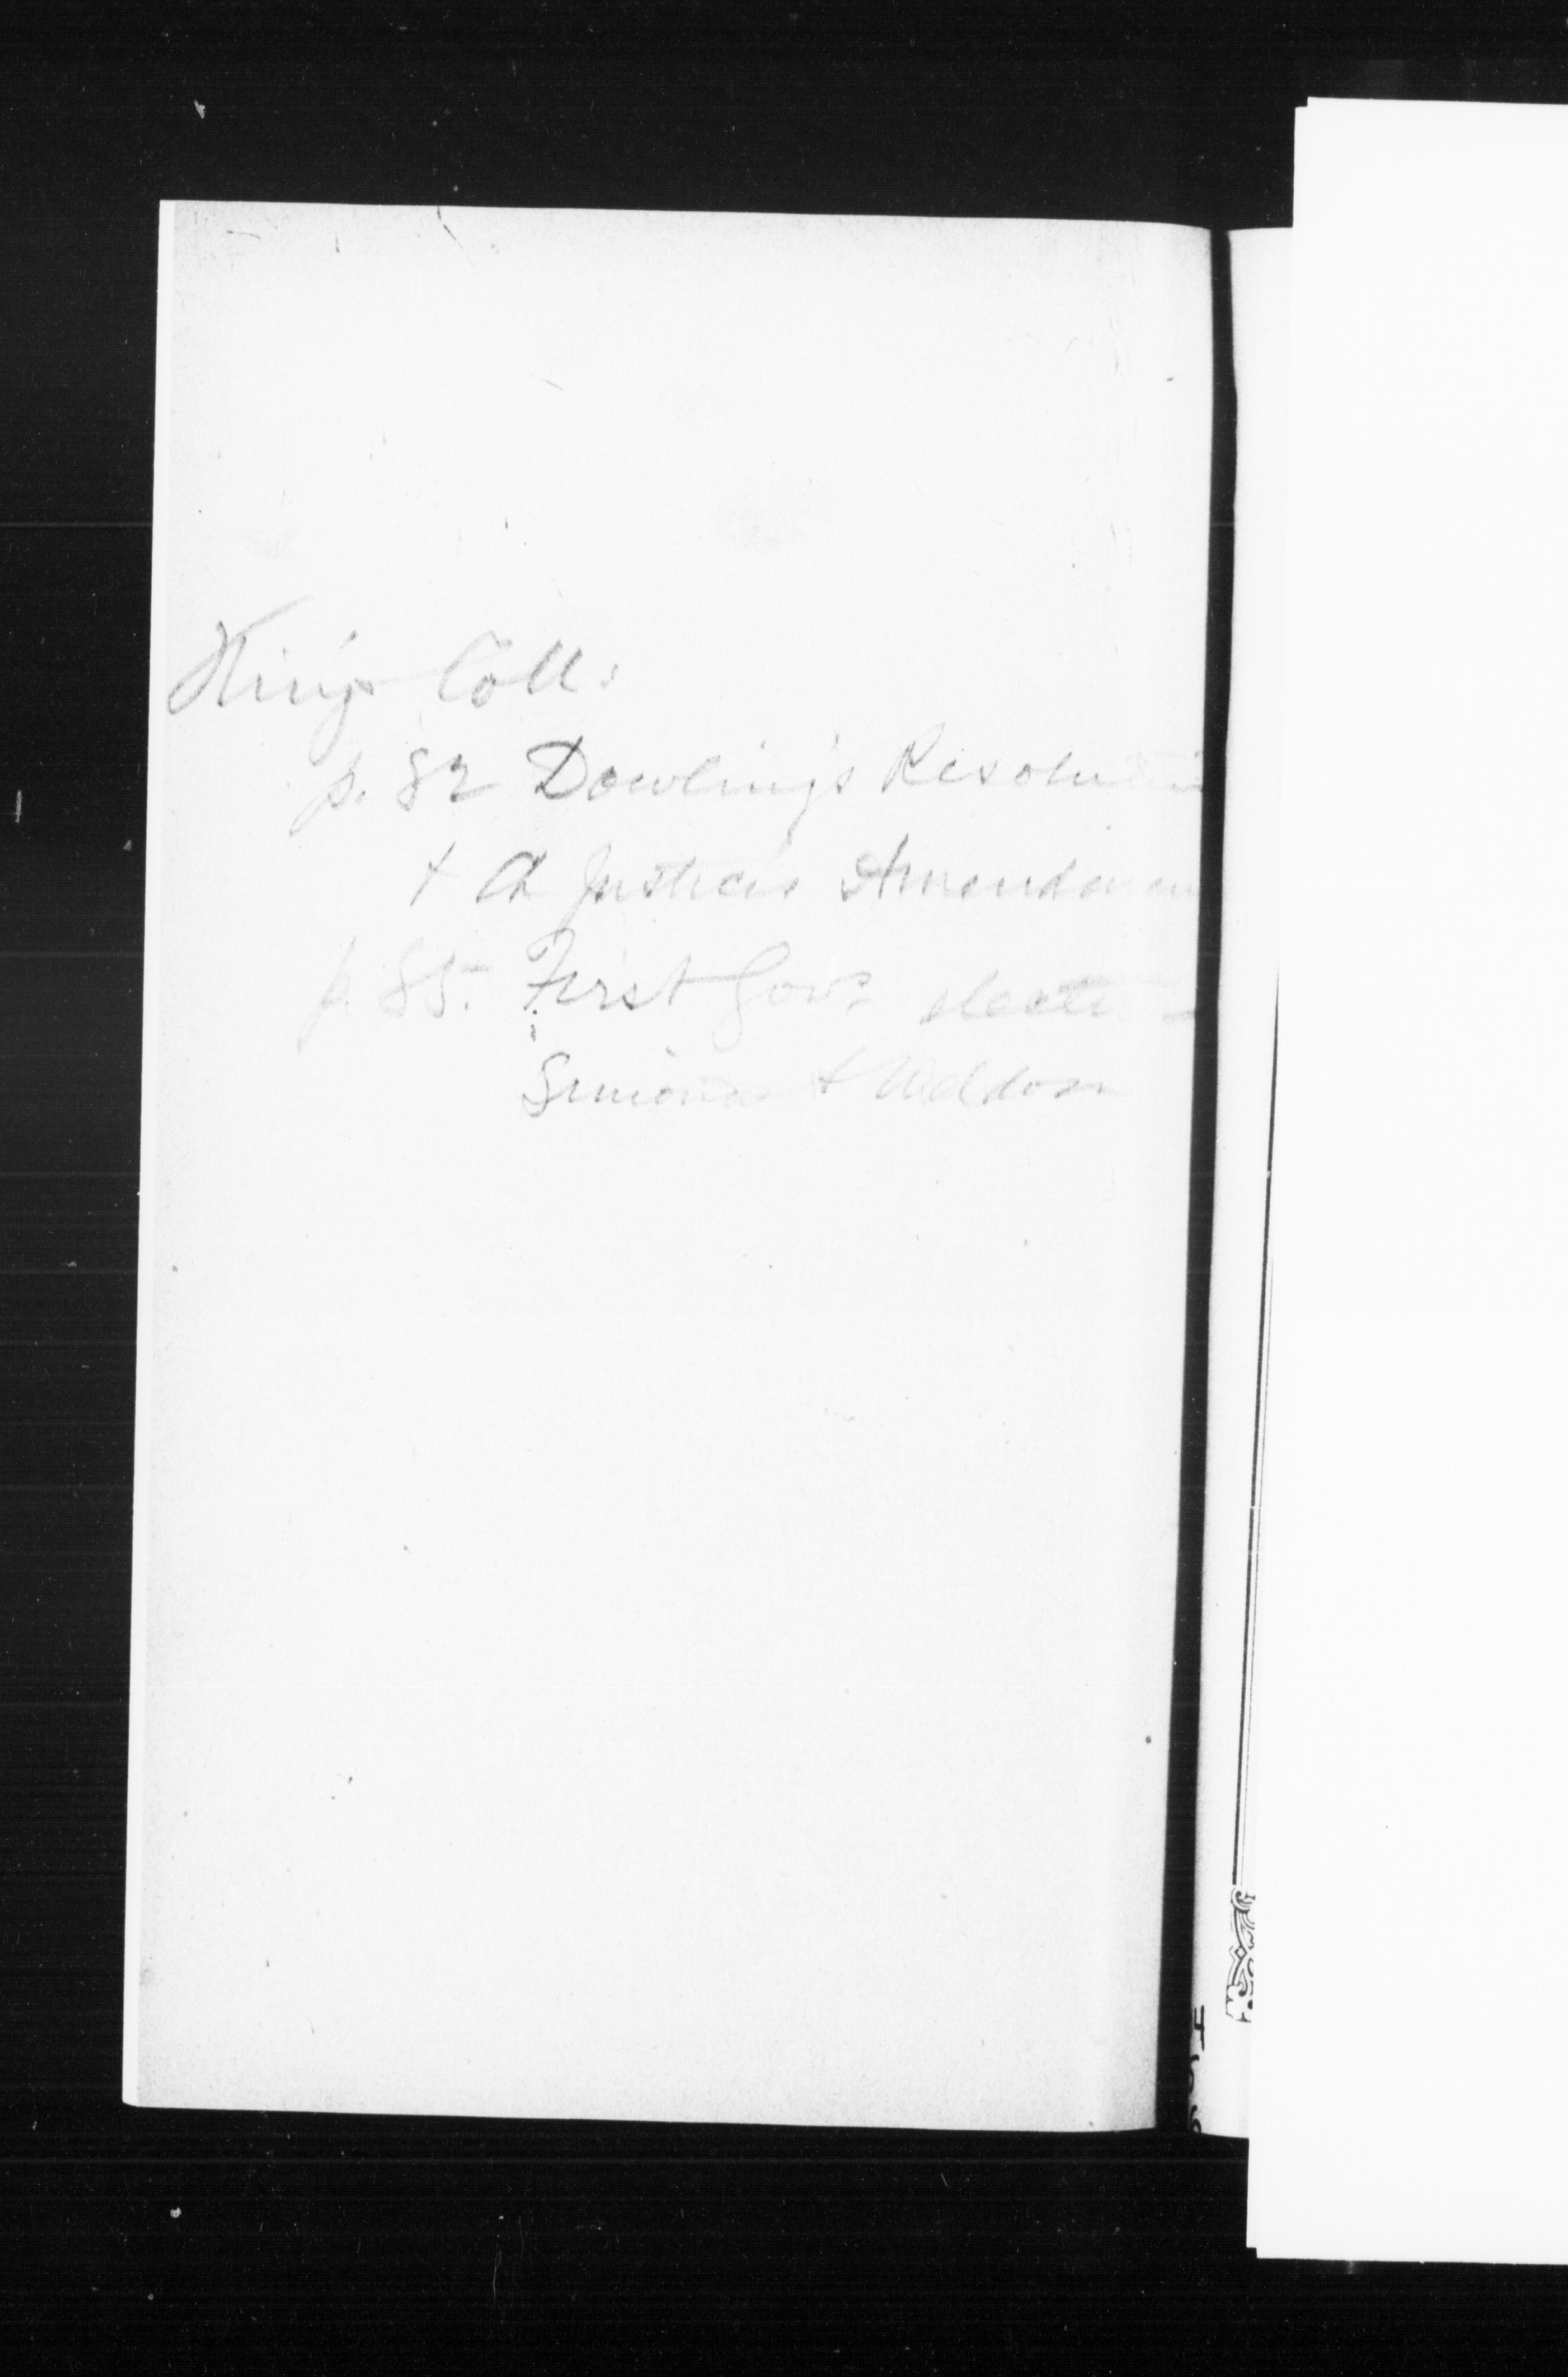 King's Coll:
p. 82 Dowling's Resolution
& Ch Justice's Amendmen
p. 85. First Govs elected
Simonds & Weldon